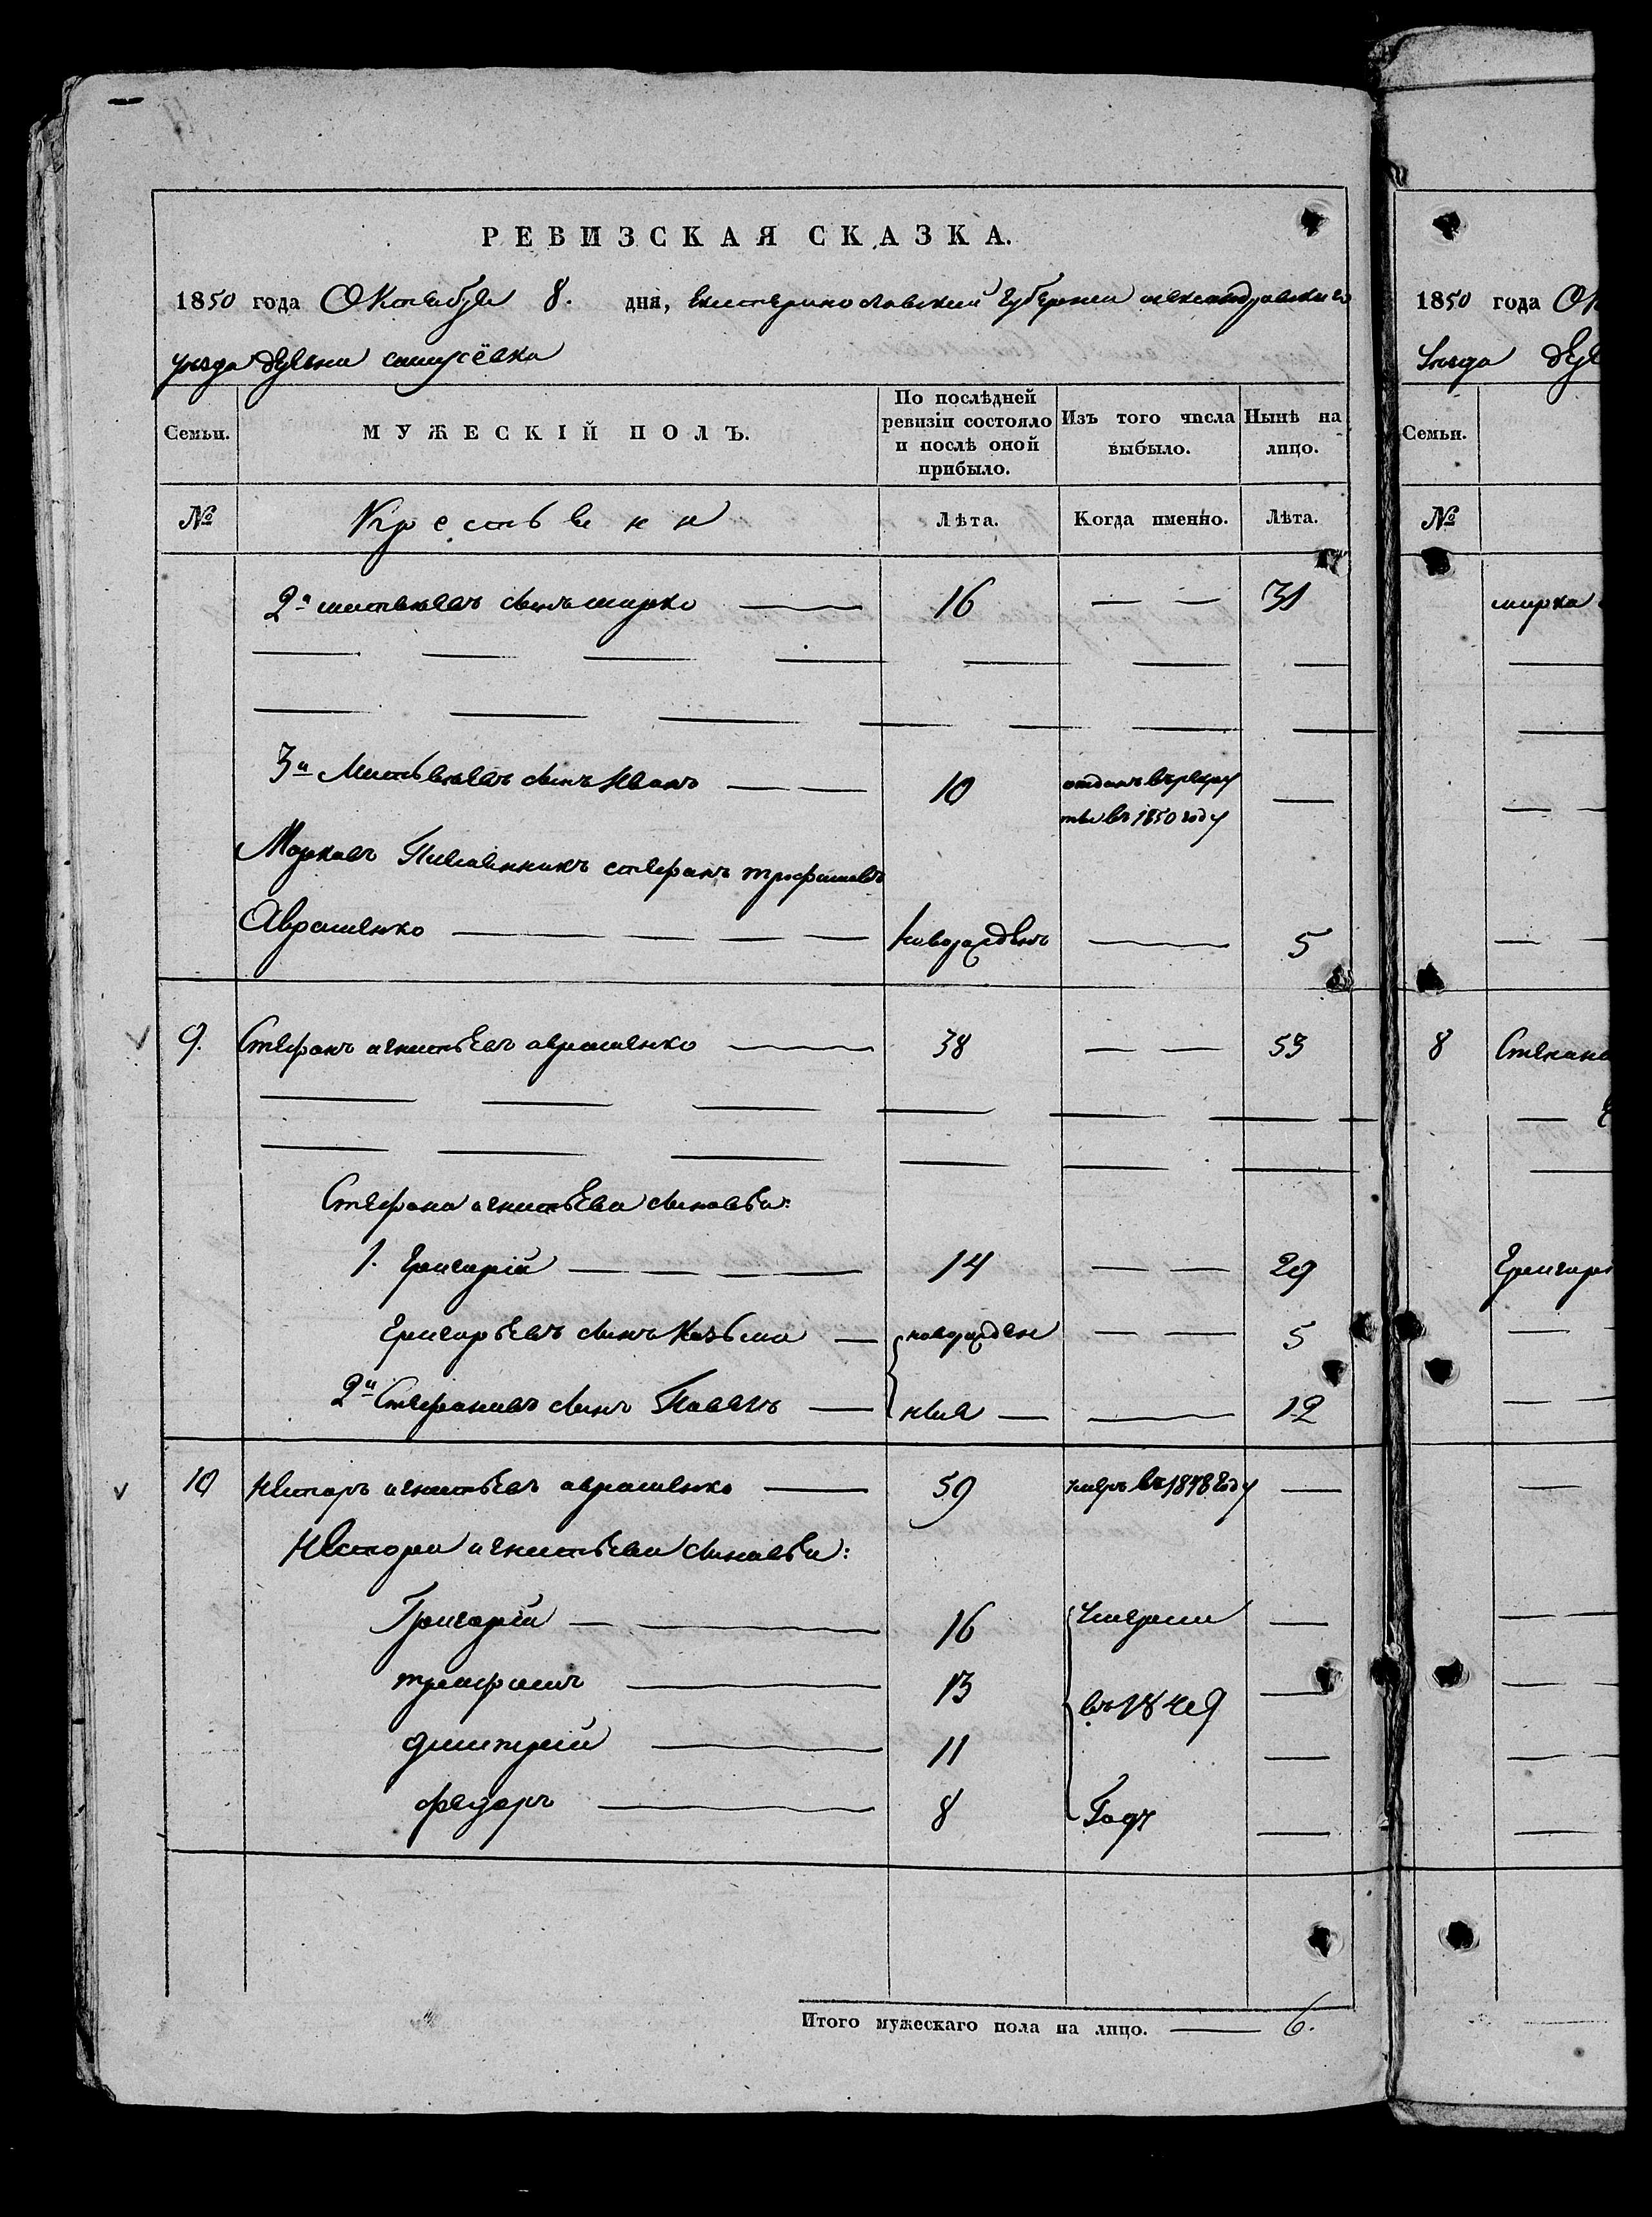 РЕВИЗСКАЯ СКАЗКА.
1850 года Октября 8. дня, Екатеринославской Губернии Александровскаго
уезда деревни
Семьи. МУЖЕСКІЙ ПОЛЪ. По послѣдней ревизіи состояло и послѣ оной прибыло. Изъ того числа выбыло. Нынѣ на лицо.
№ Крестьяне Лѣта. Когда именно. Лѣта.
2й Матвѣевъ сынъ Марко 16 31
3й Матвѣевъ сынъ Иванъ 10 отданъ въ рекру
ты въ 1850 году
Марковъ стефанъ трофимовъ
Авраменко новорожденъ 5
9. Стефанъ игнатьевъ авраменко 38 53
Стефана игнатьева сыновья:
1. Григорій 14 29
Григорьевъ сынъ Козьма новорожден 5
2й Стефановъ сынъ Павелъ ные 12
10 Несторъ игнатьевъ авраменко 59 умеръ въ 1848 году
Нестора игнатьева сыновья:
Григорій 16 умерли
трофимъ 13
въ 1849
дмитрій 11
федоръ 8 Годе
Итого мужескаго пола на лицо. 6.
1850 года Ок
Уезда дер
Семьи.
№
марка
8 Степана
Григорі